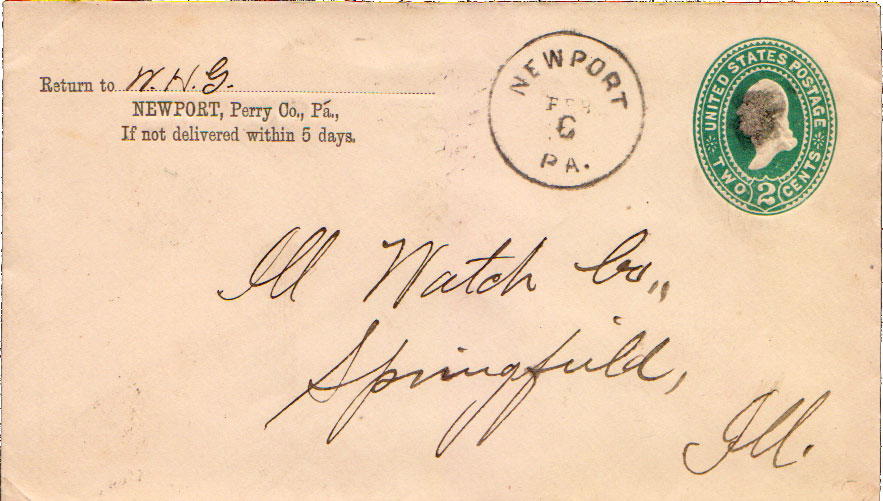 Return to W. H. G.
NEWPORT, Perry Co., Pa.,
If not delivered within 5 days.
NEWPORT
FEB
6
PA.
UNITED STATES POSTAGE
TWO 2 CENTS
Ill Watch Co.,
Springfield,
Ill.